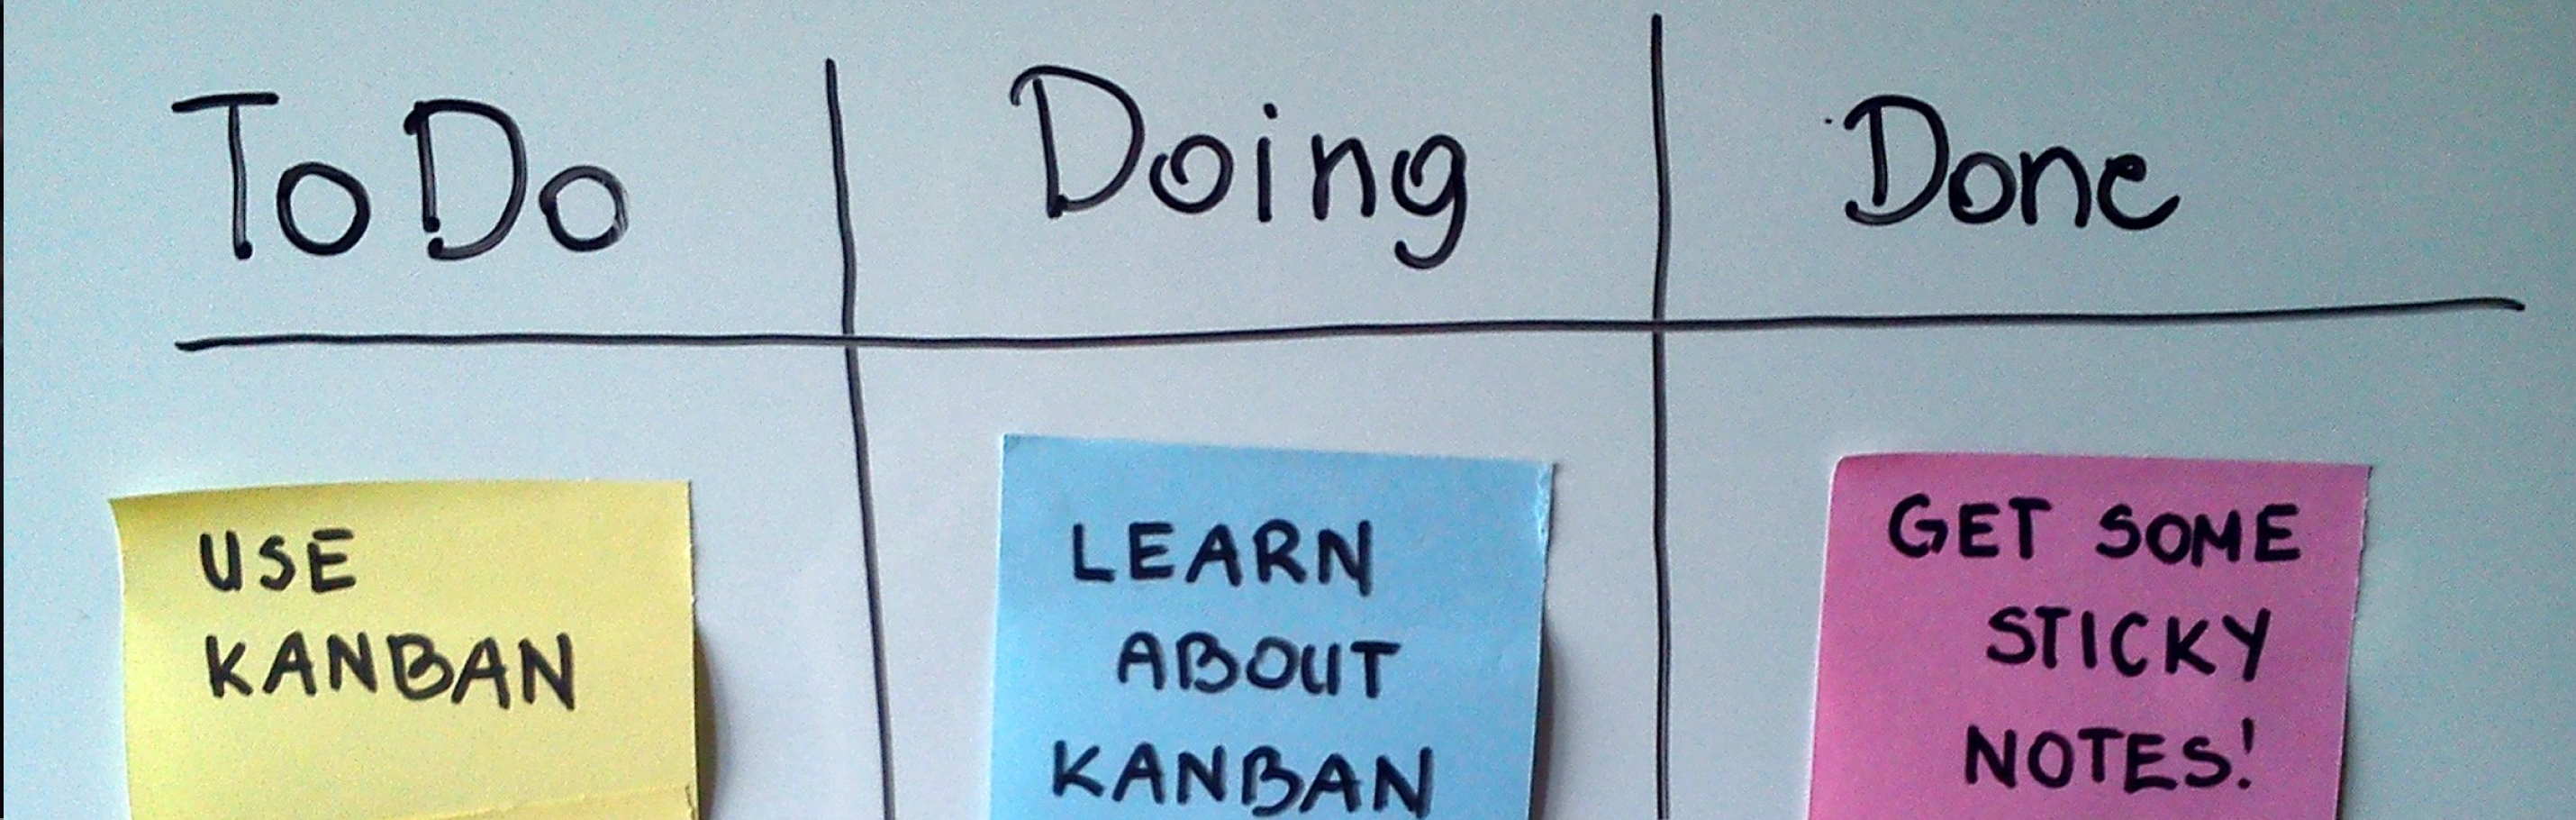 To Do
Doing
Done
USE
KANBAN
LEARN
ABOUT
KANBAN
GET SOME
STICKY
NOTES!